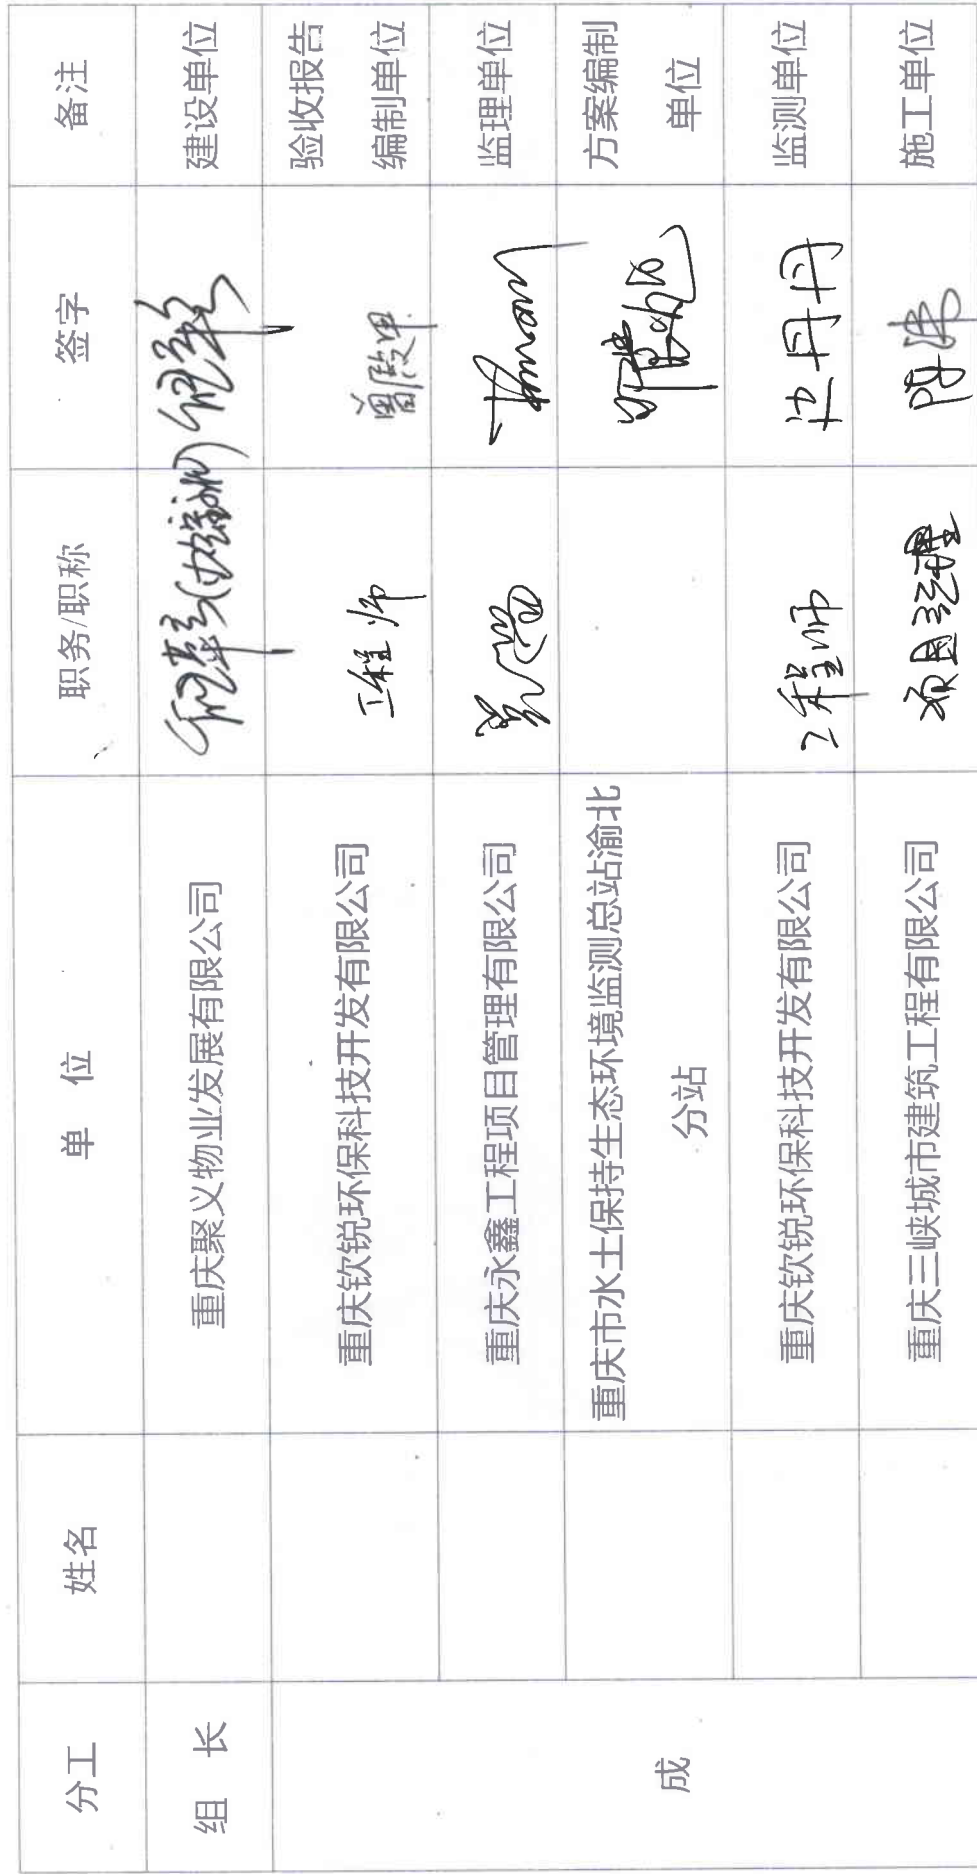 分工 姓名 单 位 职务/职称 签字 备注
组 长 重庆聚义物业发展有限公司 建设单位
成
重庆钦锐环保科技开发有限公司 工程师 验收报告
编制单位
重庆永鑫工程项目管理有限公司 监理单位
重庆市水土保持生态环境监测总站渝北 方案编制
分站 单位
重庆钦锐环保科技开发有限公司 工程师 丹丹 监测单位
重庆三峡城市建筑工程有限公司 项目经理 施工单位